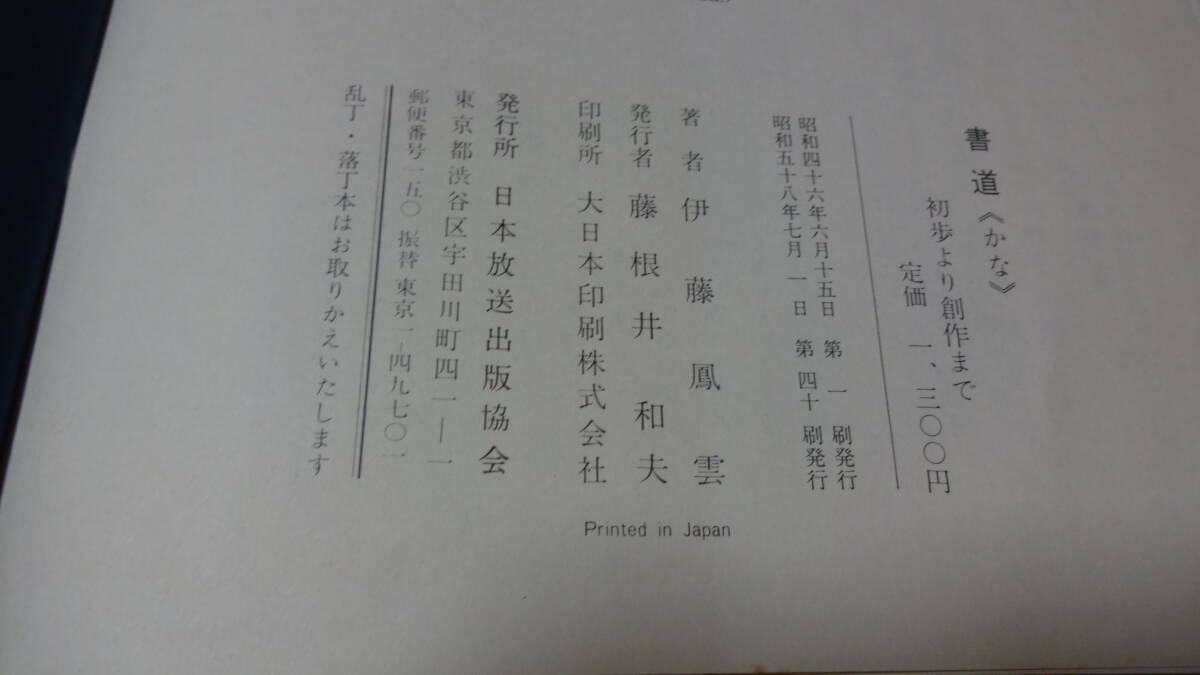 書道《かな》
初歩より創作まで
定価 一、三〇〇円
昭和四十六年六月十五日 第一刷発行
昭和五十八年七月一日 第四十刷発行
著者 伊藤鳳雲
発行者 藤根井和夫
印刷所 大日本印刷株式会社
発行所 日本放送出版協会
東京都渋谷区宇田川町四一―一
郵便番号一五〇 振替 東京一-四九七〇一
乱丁・落丁本はお取りかえいたします
Printed in Japan